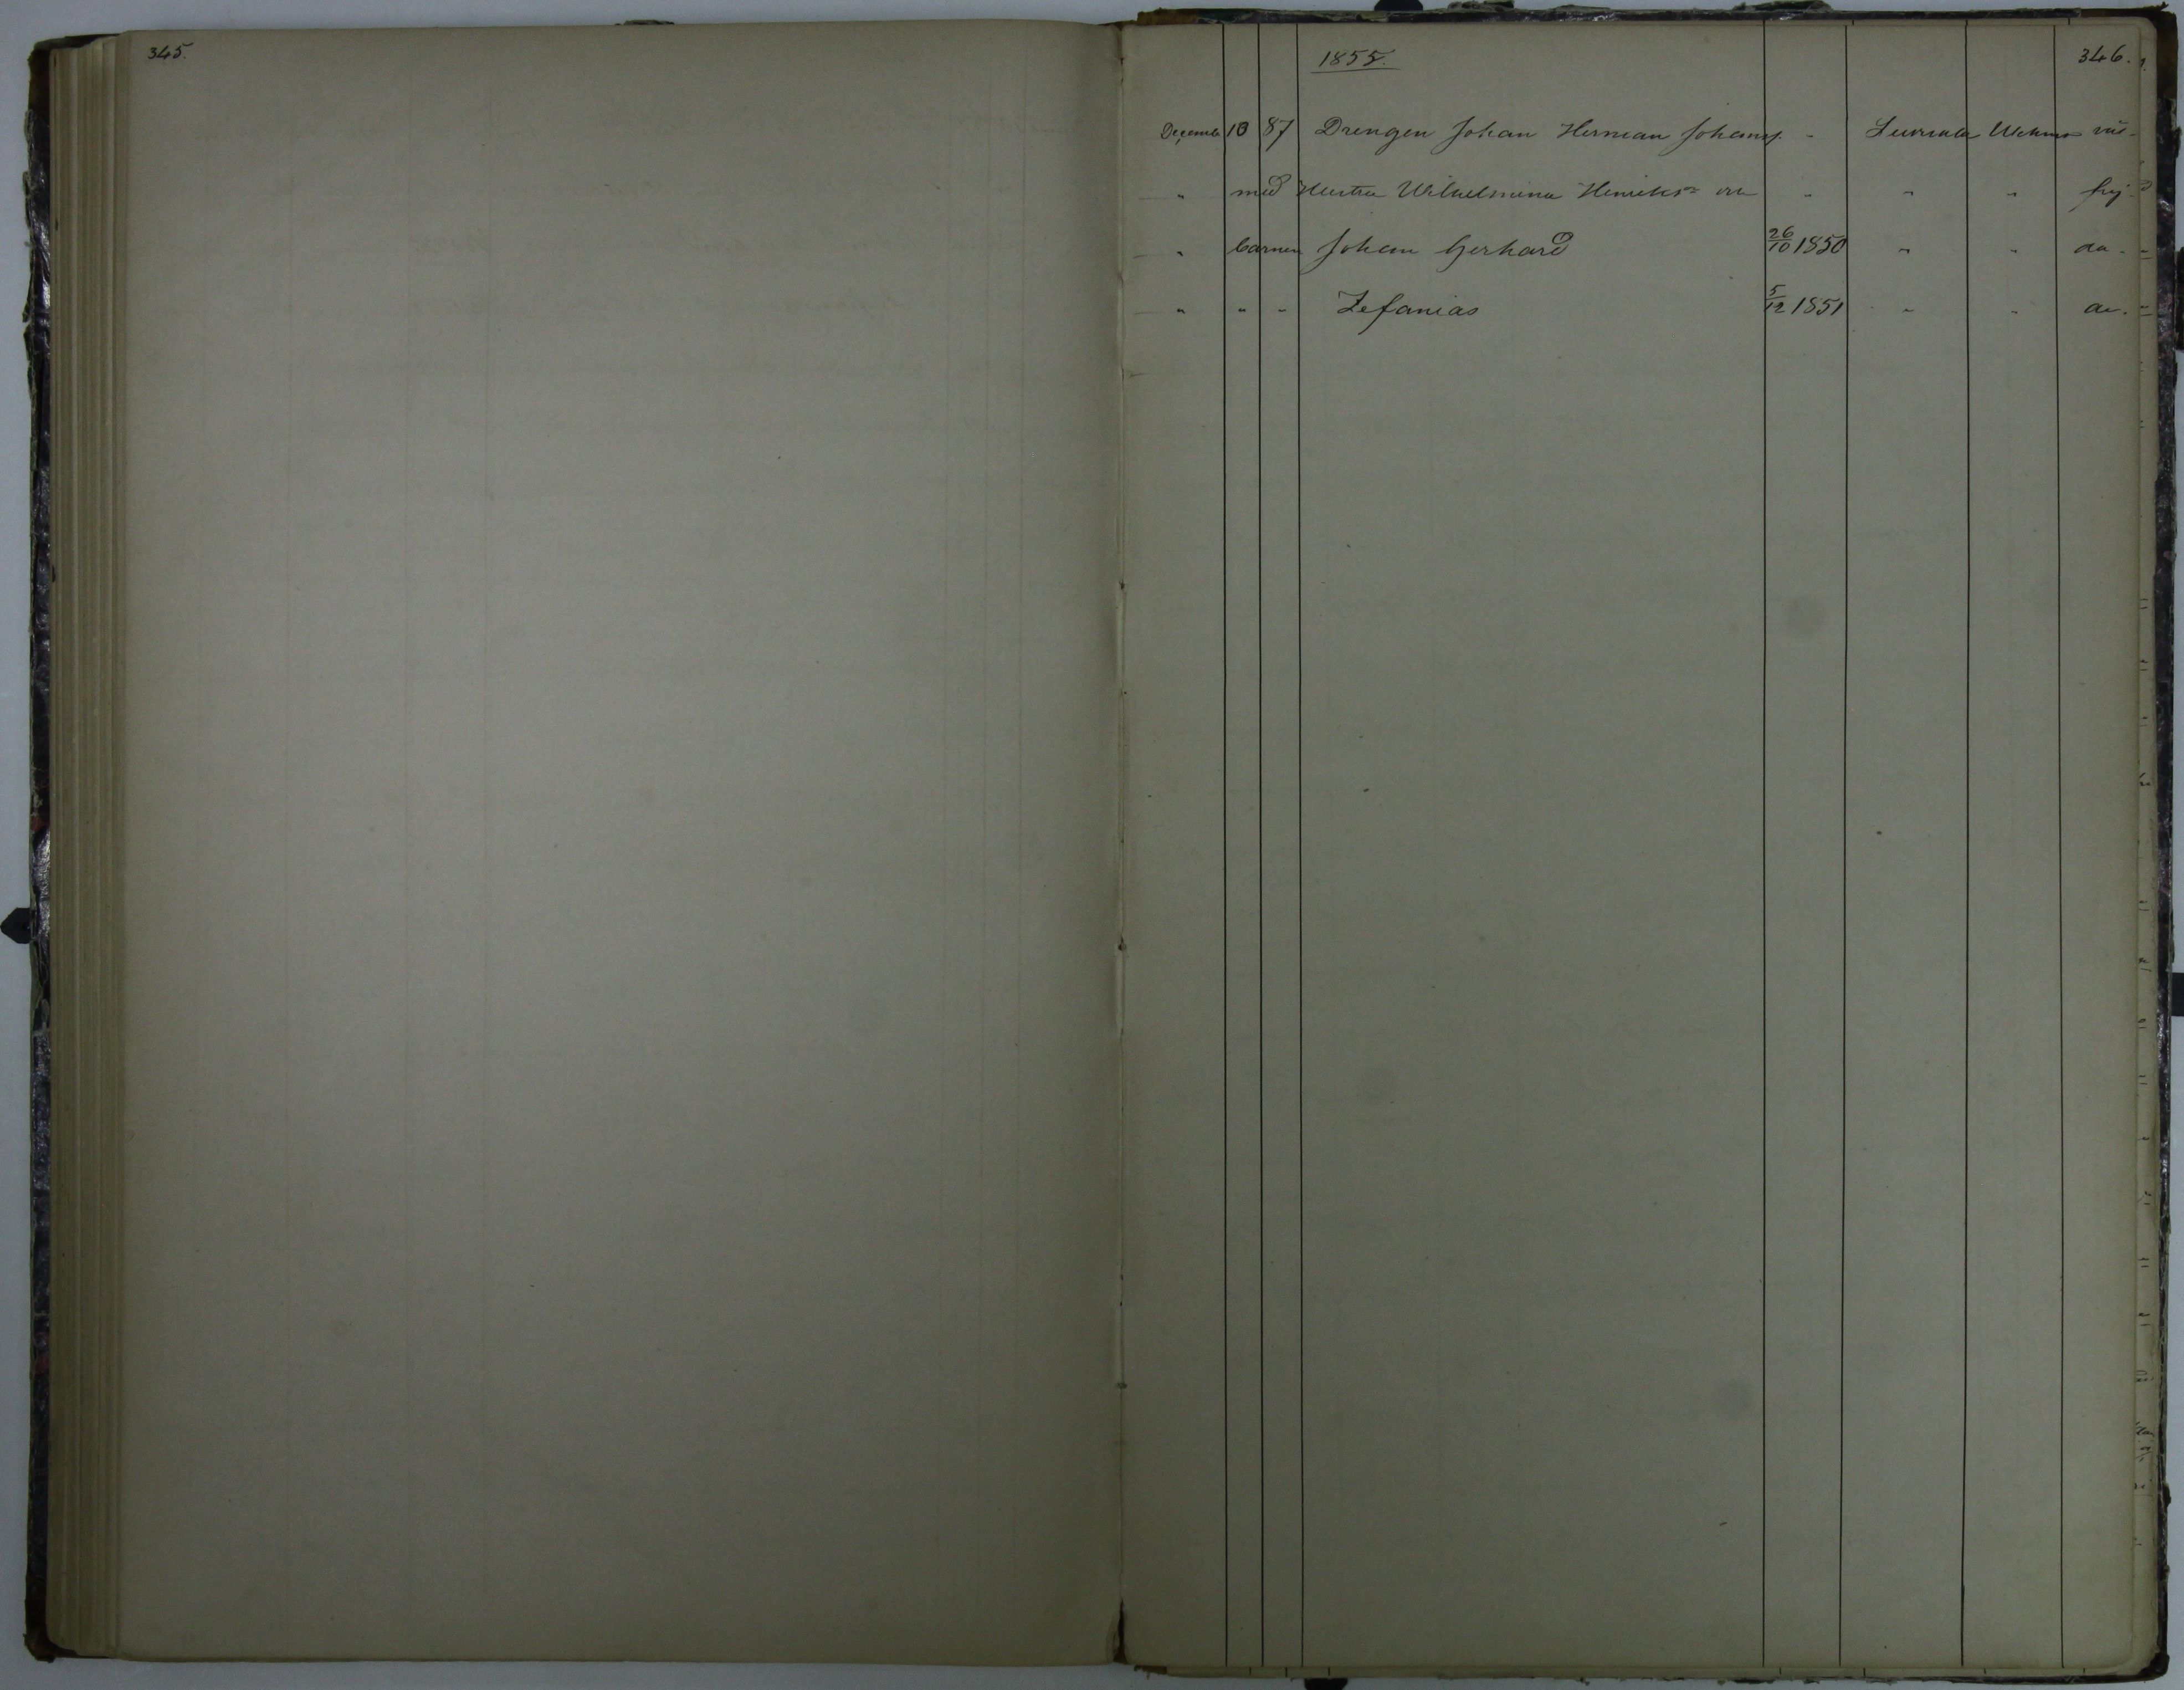 345.
1855. 346.
Decemb 10 87 Drengen Johan Herman Johanss. -
" med Hustru Wilhelmina Henriksr och " " " frij
" barnen Johan Gerhard 26/10 1850 " " da.
" " " Zefanias 5/12 1851 " " da.